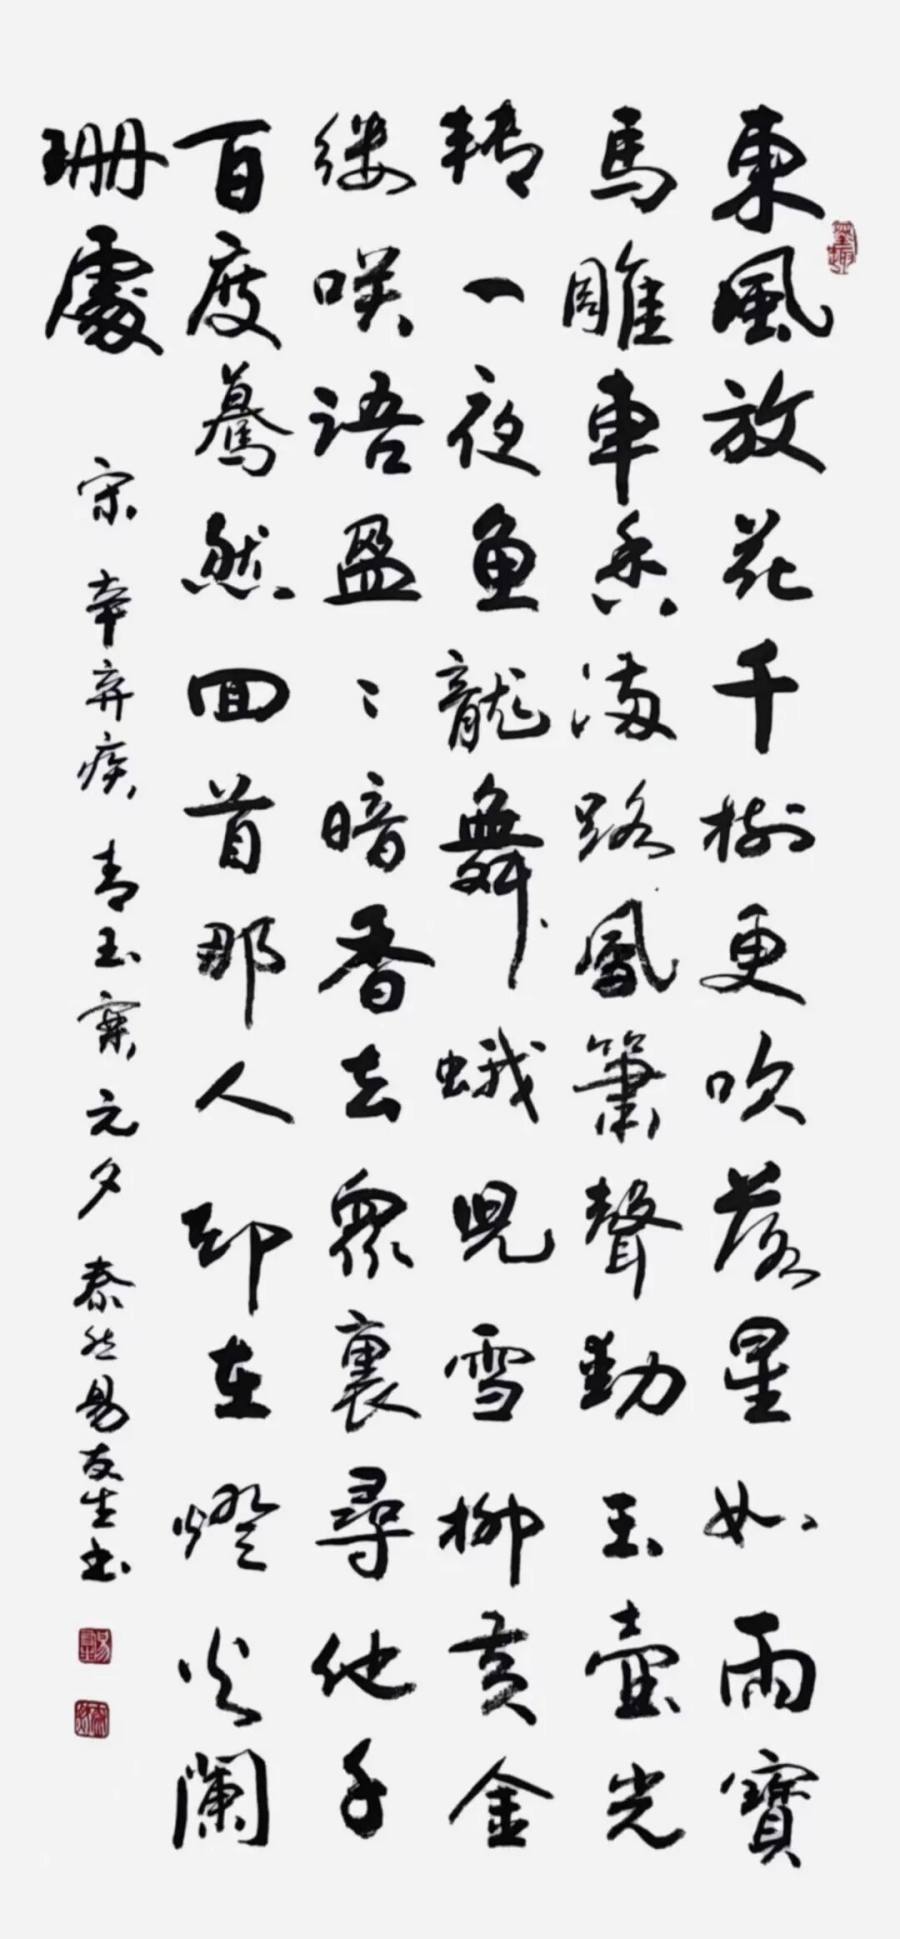 東風放花千樹更吹落星如雨寶
馬雕車香滿路鳳簫聲動玉壺光
轉一夜魚龍舞蛾兒雪柳黄金
缕咲語盈〻暗香去眾裏尋他千
百度驀然回首那人却在燈火闌
珊處
宋 辛弃疾 青玉案 元夕 泰然易友生书
墨趣